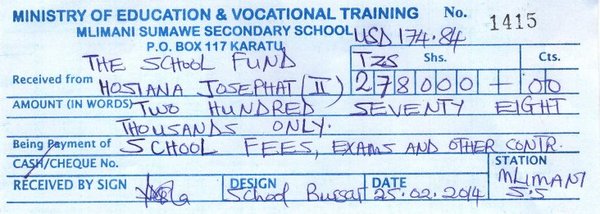 MINISTRY OF EDUCATION & VOCATIONAL TRAINING No. 1415
MLIMANI SUMAWE SECONDARY SCHOOL USD 174.84
P.O. BOX 117 KARATU
THE SCHOOL FUND TZS Shs. Cts.
Received from HOSIANA JOSEPHAT (II) 278000 – 00
AMOUNT (IN WORDS) TWO HUNDRED SEVENTY EIGHT
THOUSANDS ONLY.
Being Payment of SCHOOL FEES, EXAMS AND OTHER CONTR.
CASH/CHEQUE No. STATION
RECEIVED BY SIGN DESIGN School Bursar DATE 25.02.2014 MLIMANI
S.S